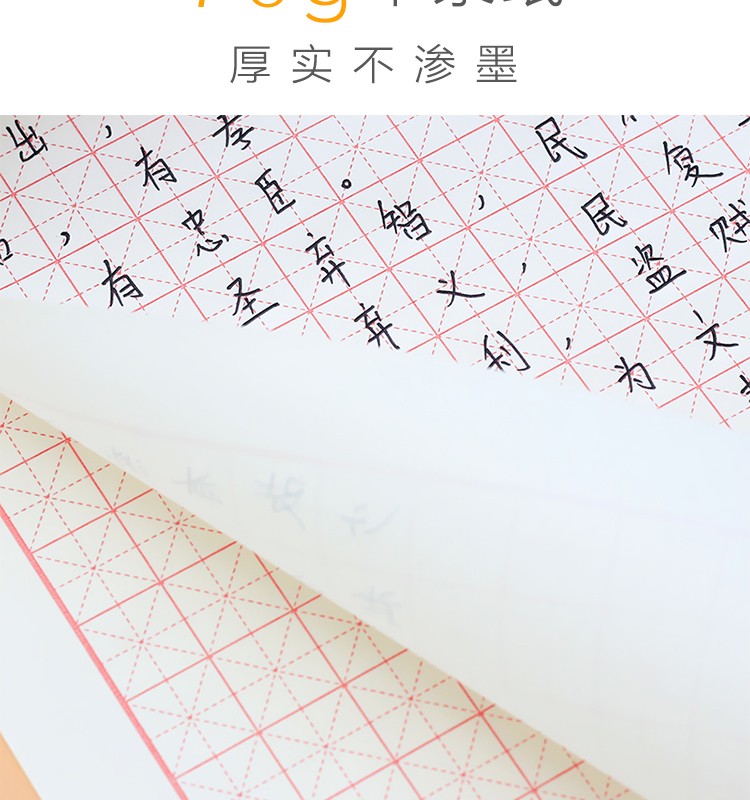 厚实不渗墨
出，
，有孝
有忠臣。
圣弃智，民
弃义，民复
利，盗贼
为文